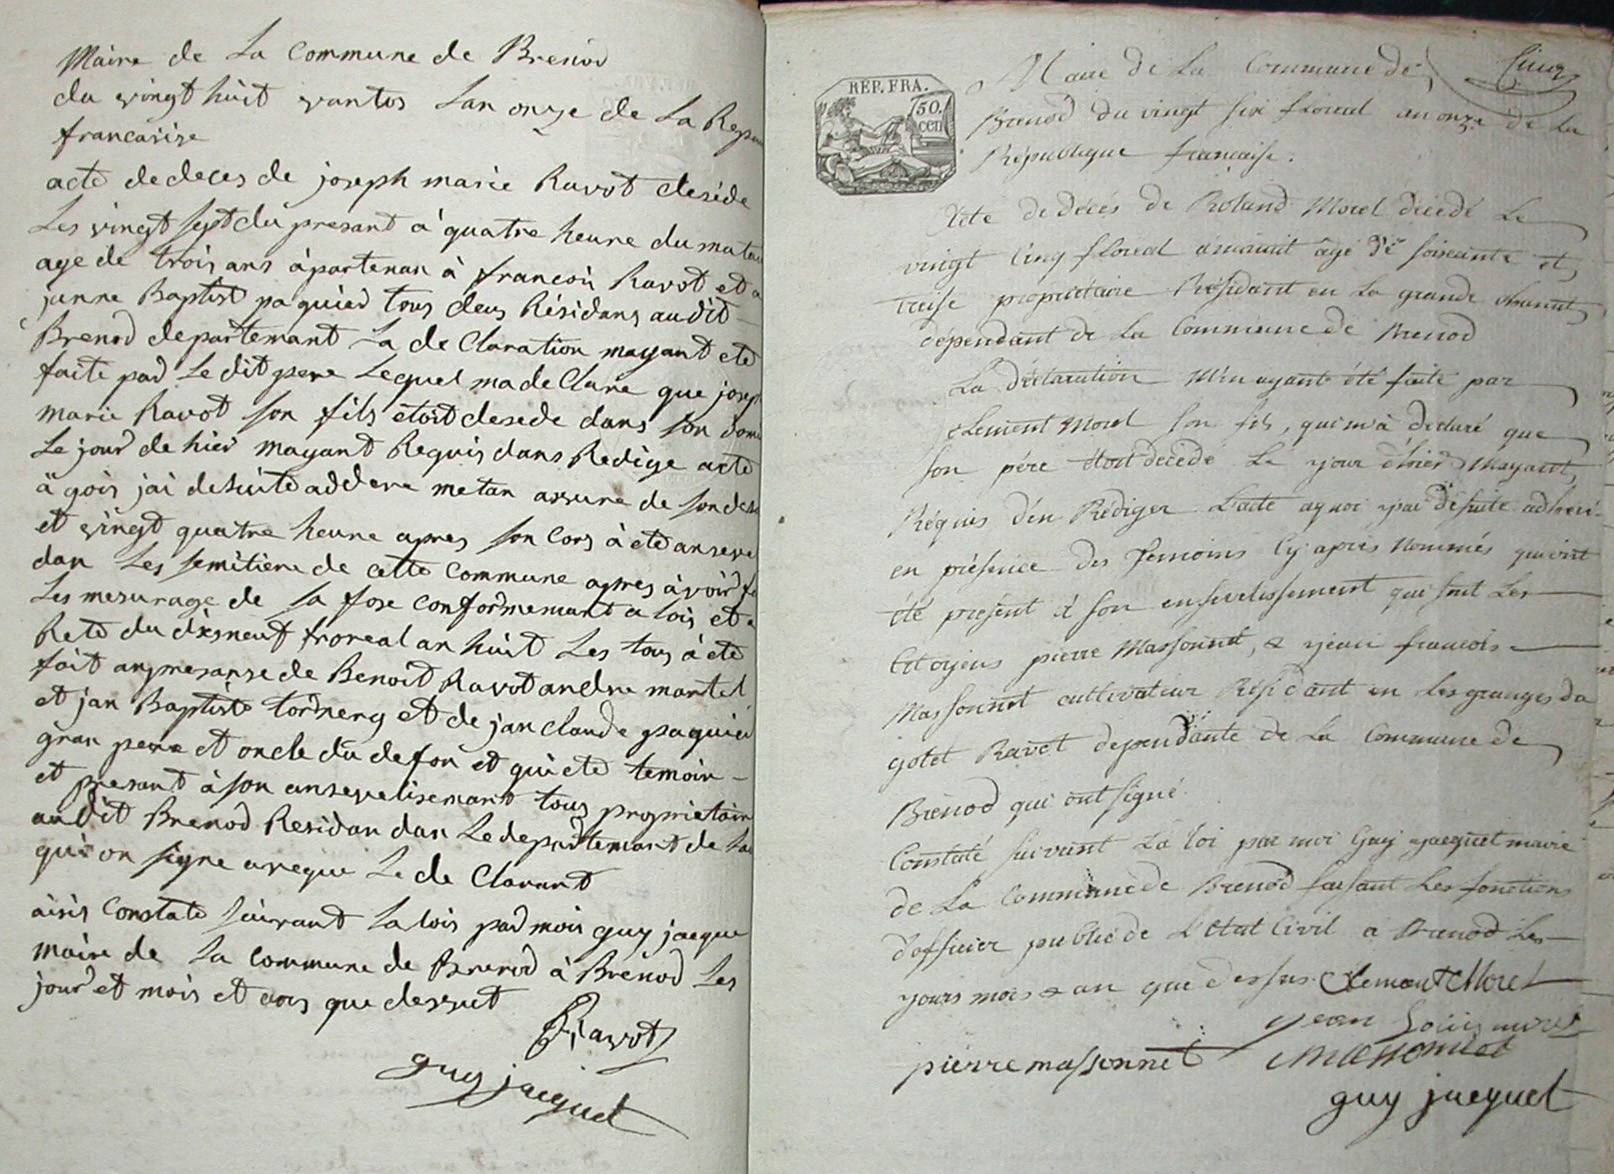 Maire de La Commune de Brenod
du vingt huit vantos Lan onze de La Repu
francaisise
acte de deces de joseph marie Ravot desede
Les vingt sept du presant à quatre heure du mata
age de trois ans àpartenan à francois Ravot et a
janne Baptist paquier tous deus Résidans au dit
Brenod departemant La de Claration mayant ete
faite pad Le dit pere Lequel ma de Clare que josep
marie Ravot son fils etoit desede dans son dom
Le jour de hier mayant Requis dans Redige acte
à qois jai desuite addere me tan assure de son des
et vingt quatre heure apres son Cors à ete anseve
dan Les semitiere de cette Commune apres àvoir f
Les mesurage de sa fose conformemant a lois et a
Rete du disneuf froreal an huit Les tous à ete
fait anpresanse de Benoit Ravot andre mantel
et jan Baptiste tornery et de jan claude paquier
gran pere et oncle du defon et qui ete temoin
et presant à son ansevelisemant tous proprietair
au dit Brenod Residan dan Le departemant de La
qui on signe aveque Le de Clarant
àisis Constate suivant La lois pad mois guy jacque
maire de La Commune de Brenod à Brenod Les
jour et mois et ans que dessut
Ravot
guy jacquet
RÉP. FRA.
50.
cen
Cinq
Maire de La Commune de
Brenod du vingt six floreal an onze de La
République francaise.
Acte de décès de Roland Morel décédé Le
vingt Cinq floreal à minuit âgé de soixante et
treise propriétaire Résidant en La grande
dépendant de La Commune de Brenod
La déclaration M'en ayant été faite par
Clement Morel son fils, qui m'à déclaré que
son pére étoit décédé Le jour d'hier Mayant
Réquis d'en Rédiger L'acte aquoi j'ai de suite adhéré
en présence des Temoins Cy après Nommés qui ont
été présent à son ensevelissement qui sont Les
Citoyens pierre Massonnet, & jean francois
Massonnet cultivateur Résidant en Les granges da
gotet Ravet dependante de La Commune de
Brénod qui ont signé.
Constaté suivant La loi par moi Guy jacquet maire
de La Commune de Brenod faisant Les fonctions
d'officier public de L'état Civil a Brenod Les
jours mois & an que dessus. Clemant Morel
jean Louis
pierre massonnet massonnet
guy jacquet